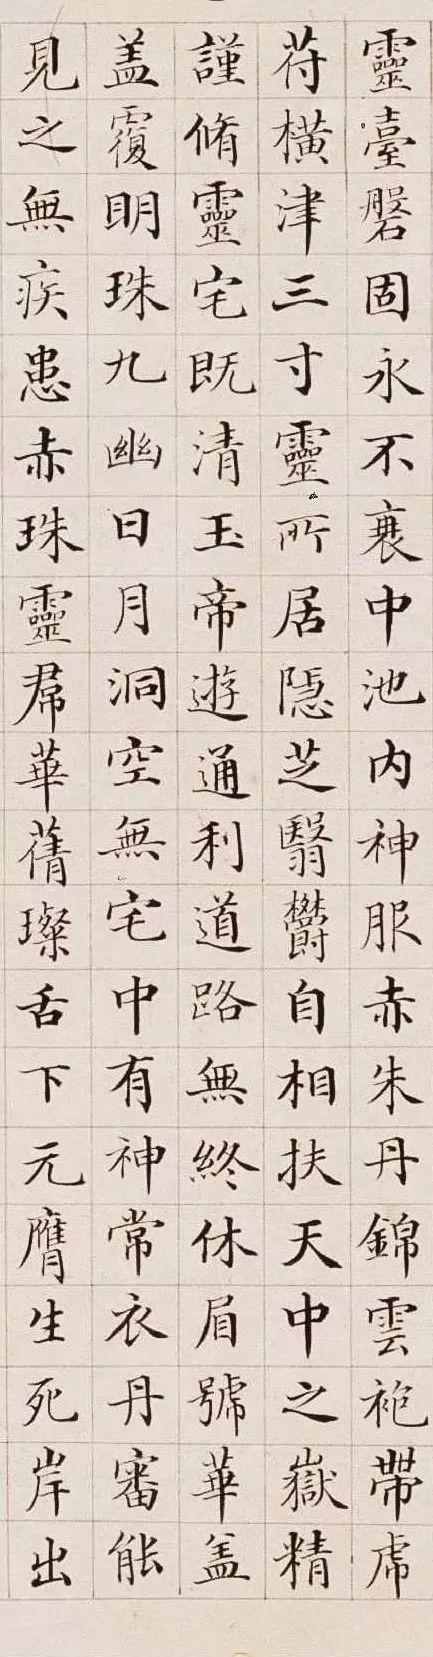 靈臺磐固永不衰中池内神服赤朱丹錦雲袍帶虎
苻橫津三寸靈所居隱芝翳鬱自相扶天中之嶽精
謹脩靈宅既清玉帝遊通利道路無終休眉號華盖
盖覆明珠九幽日月洞空無宅中有神常衣丹審能
見之無疾患赤珠靈帬華蒨璨舌下元膺生死岸出